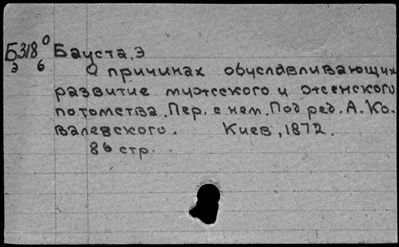 Б318⁰ Бауста, Э
Э 6
О причинах обуславливающих
развитие мужеского и женского
потомства. Пер. с нем. Под ред. А. Ко-
валевского. Киев, 1872.
86 стр.